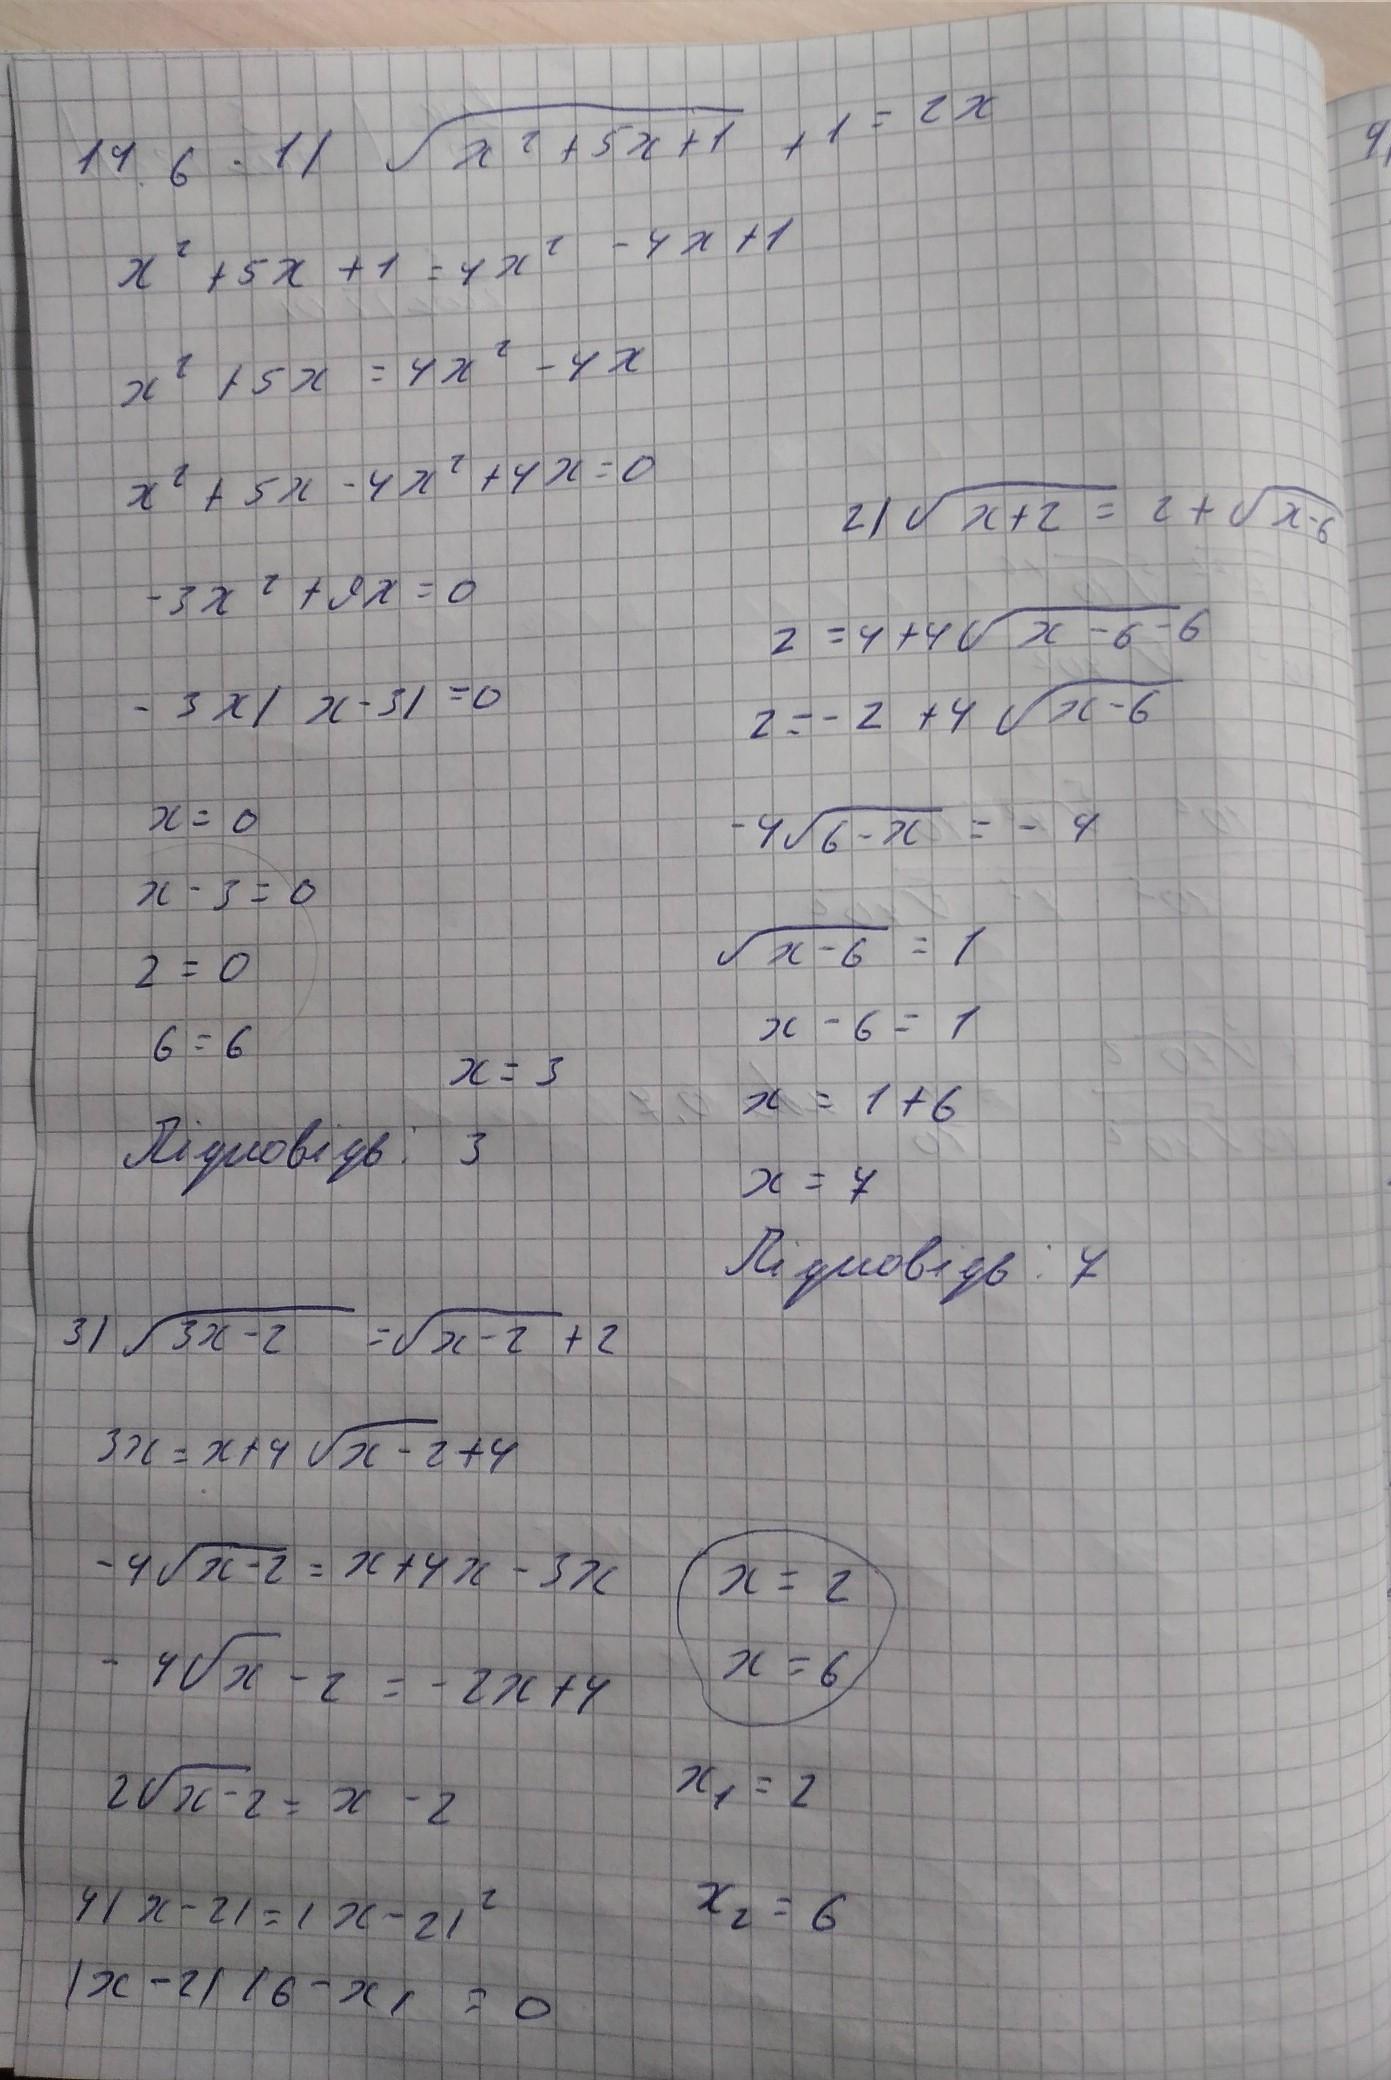 14.6 - 1) √(x² + 5x + 1) + 1 = 2x
x² + 5x + 1 = 4x² - 4x + 1
x² + 5x = 4x² - 4x
x² + 5x - 4x² + 4x = 0
-3x² + 9x = 0
-3x( x - 3) = 0
x = 0
x - 3 = 0
2 = 0
6 = 6
x = 3
Відповідь: 3
2) √(x+2) = 2 + √(x-6)
2 = 4 + 4√(x - 6 - 6)
2 = -2 + 4√(x-6)
-4√(6-x) = -4
√(x-6) = 1
x - 6 = 1
x = 1 + 6
x = 7
Відповідь: 7
3) √(3x-2) = √(x-2) + 2
3x = x + 4√(x-2) + 4
-4√(x-2) = x + 4x - 3x
-4√x - 2 = -2x + 4
2√(x-2) = x - 2
4(x-2) = (x-2)²
(x-2)(6-x) = 0
x = 2
x = 6
x₁ = 2
x₂ = 6